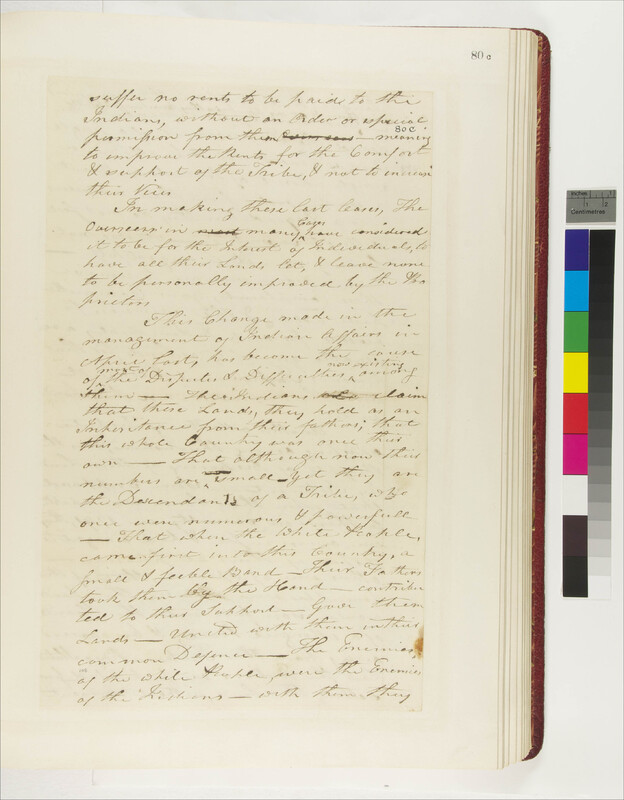 80 a
suffer no rents to be paid to the
Indians, without an Order or especial
80 c
permission from them — meaning
to improve the Rents for the Comfort
& support of the Tribe, & not to increase
their Vices
In making these last leases, The
Cases
Overseers in many have considered
it to be for the Interest of Individuals, to
have all their Lands let, & leave none
to be personally improved by the Pro
prietors
This Change made in the
management of Indian Affairs in
April last, has become the cause
most of now existing
of the Disputes & Difficulties among
them — The Indians claim
that these Lands, they hold as an
Inheritance from their fathers; that
this whole Country was once their
own — That although now their
numbers are small yet they are
the Descendants of a Tribe, who
once were numerous & powerfull
— That when the White People,
came first into this Country, a
small & feeble Band — Their Fathers
took them by the Hand — contribu
ted to their Support — Gave them
Lands — United with them in their
common Defence — The Enemies
of the white People were the Enemies
of the Indians — with them they
Inches 1 2
Centimetres